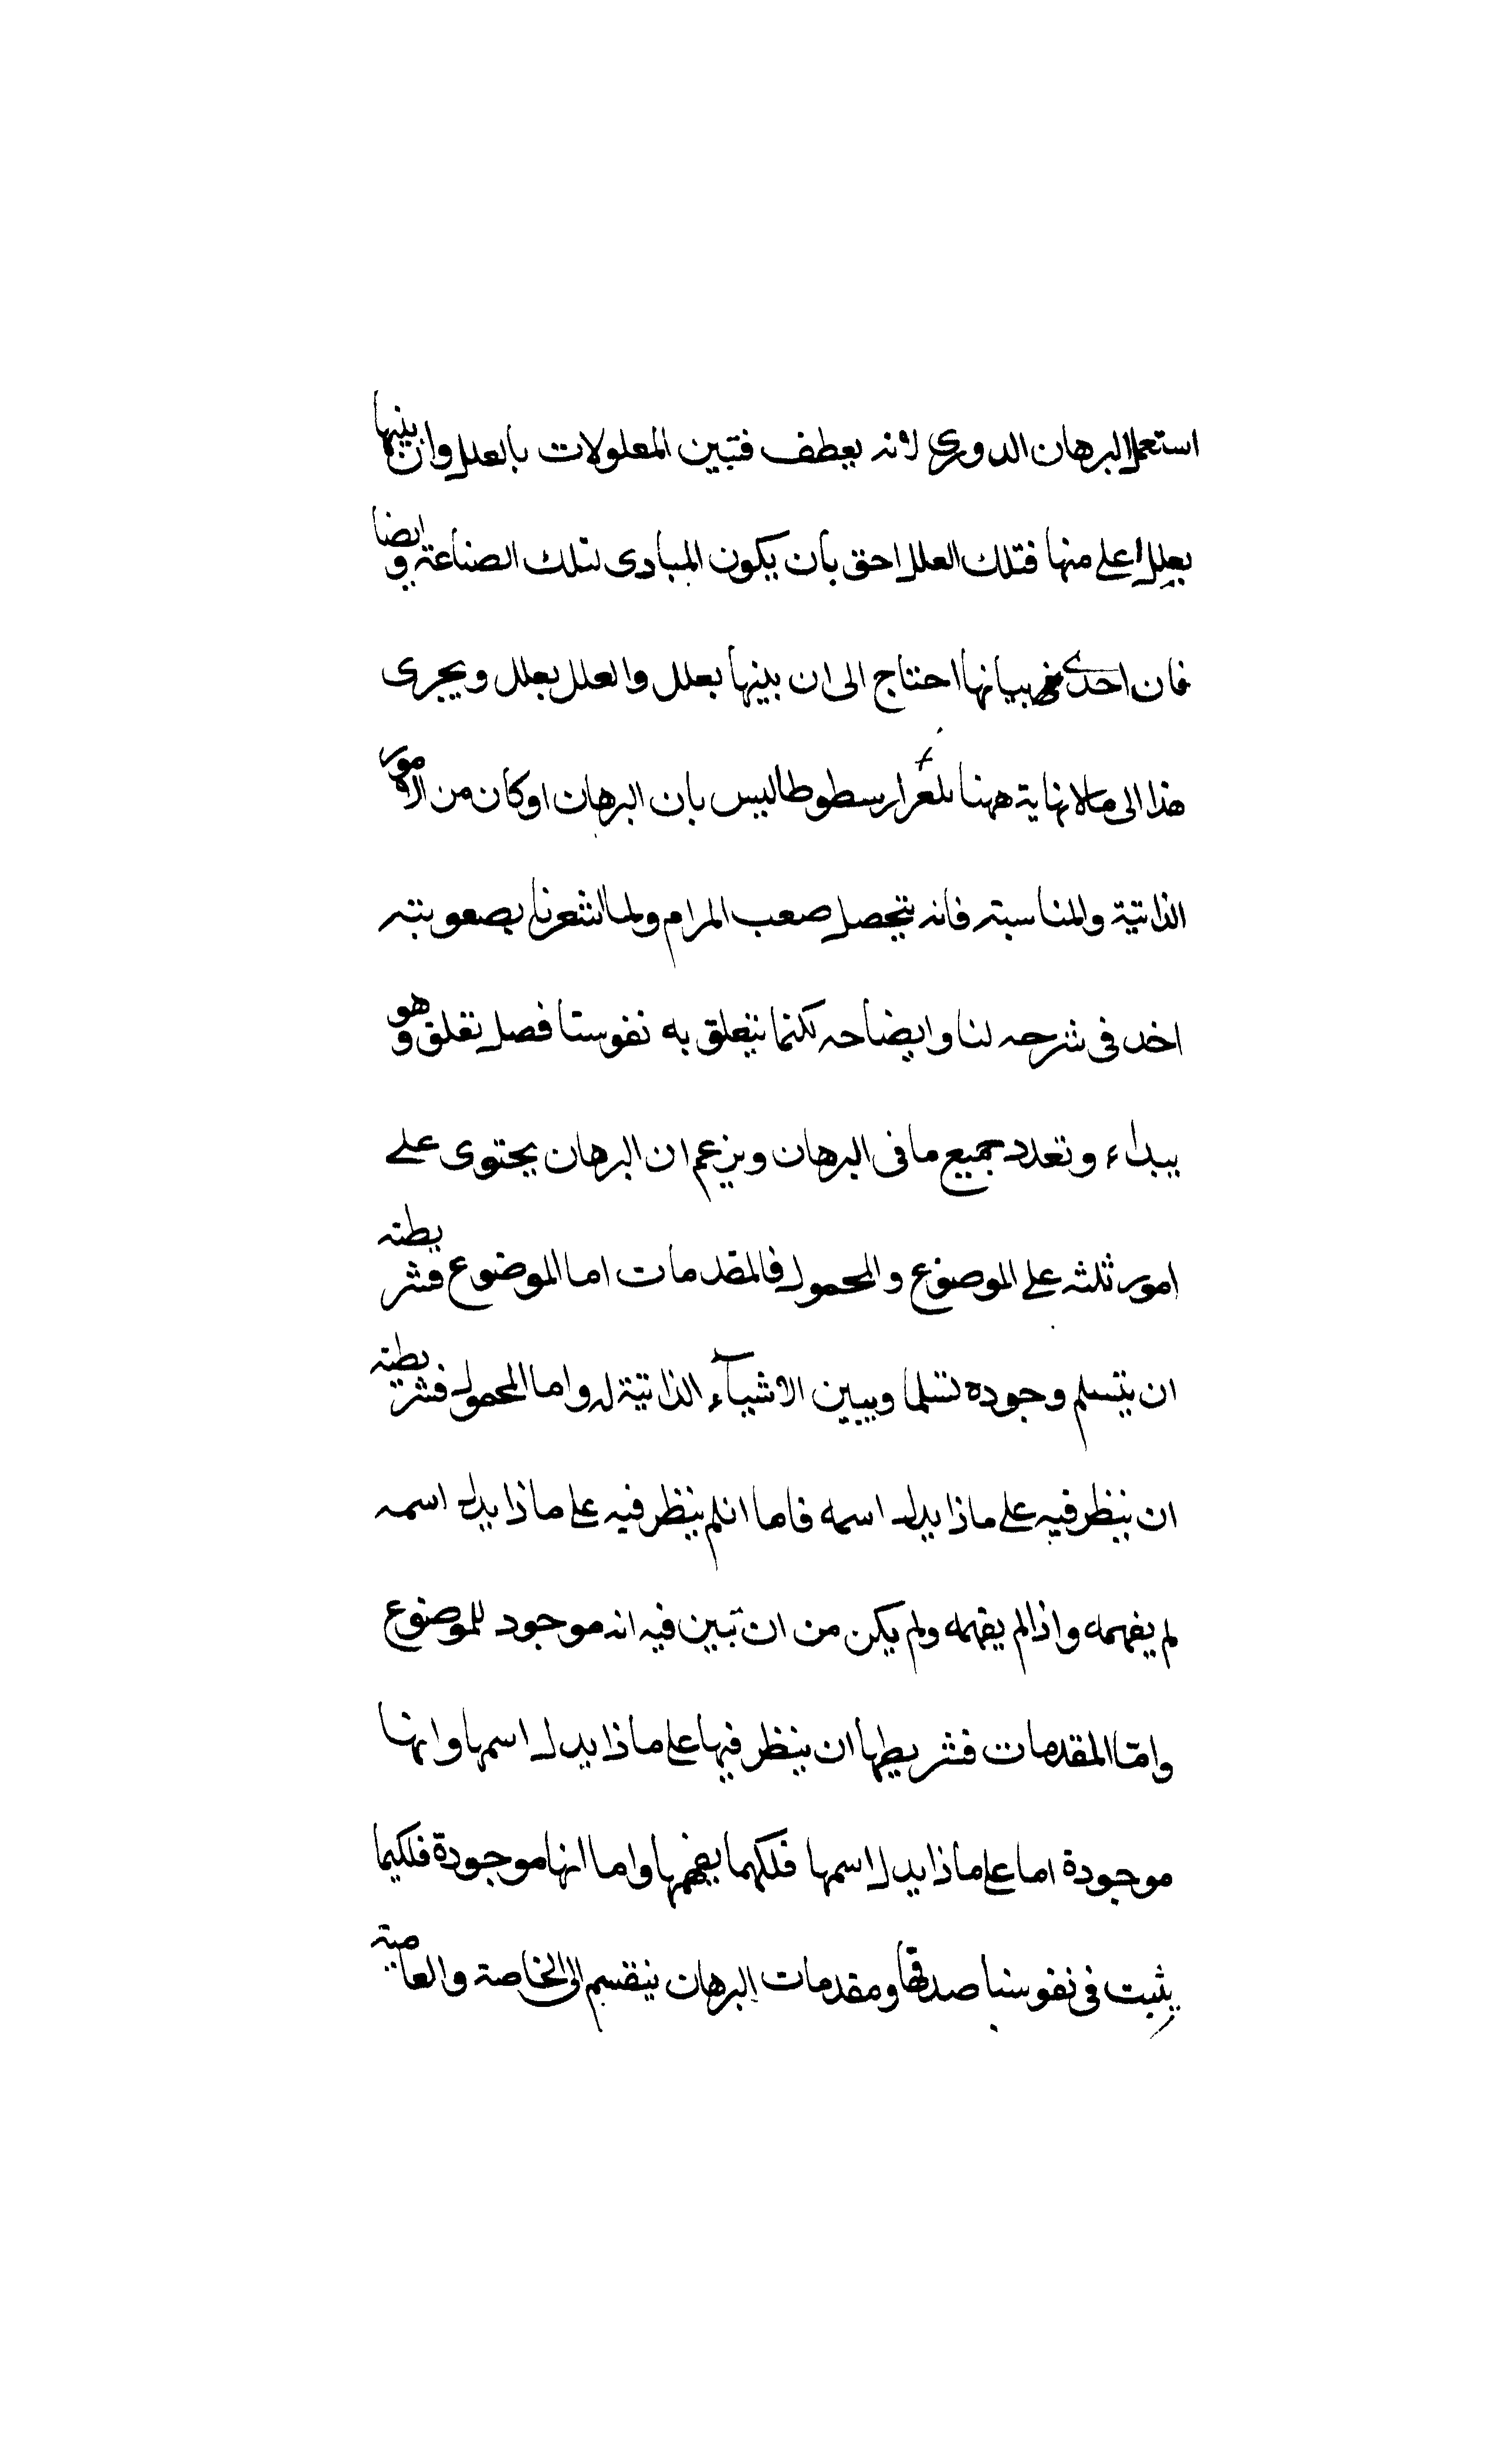 استعمل البرهان الدورى لانه يعطف فتبين المعلولات بالعلل وان بينها
بعلل اعلى منها فتلك العلل احق بان يكون المبادى لتلك الصناعة وايضا
فان احدى بيانها احتاج الى ان بينها بعلل والعلل بعلل ويجرى
هذا الى مالا نهاية ههنا ارسطوطاليس بان البرهان اوكان من الامور
الذاتية والمناسبة فانه يتحصل صعب المرام ولما اشعرنا بصعوبته
اخذ فى شرحه لنا وايضاحه لكنما يتعلق به نفوسنا فصل تعلق وهو
يبداء وتعدد جميع ما فى البرهان ويزعم ان البرهان يحتوى على
امور ثلثه على الموضوع والمحمول فالمقدمات اما الموضوع فشريطته
ان يتسلم وجوده تسلما ويبين الاشيآء الذاتية له واما المحمول فشريطته
ان ينظر فيه على ماذا يدل اسمه فاما انلم ينظر فيه على ماذا يدل اسمه
لم يفهمه واذا لم يفهمه ولم يكن من ان تبين فيه انه موجود للموضوع
وامّا المقدمات فشريطها ان ينظر فيها على ماذا يدل اسمها وانها
موجودة اما على ماذا يدل اسمها فلكيما يفهمها واما انها موجودة فلكيما
يثبت فى نفوسنا صدقها ومقدمات البرهان ينقسم الى الخاصة والعامية